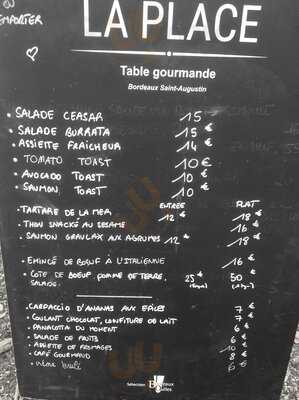 OU
EMPORTER
LA PLACE
Table gourmande
Bordeaux Saint-Augustin
• SALADE CEASAR 15
• SALADE BURRATA 15 €
• ASSIETTE FRAÎCHEUR 14 €
• TOMATO TOAST 10 €
• AVOCADO TOAST 10 €
• SAUMON TOAST 10
ENTREE PLAT
• TARTARE DE LA MER 12 € 18 €
• THON SNACKÉ AU SESAME 16 €
• SAUMON GRAVLAX AUX AGRUMES 12 € 18 €
• EMINCÉ DE BOEUF À L'ITALIENNE 16 €
• COTE DE BOEUF, POMME DE TERRE, SALADE. 25 € 50 €
• CARPACCIO D'ANANAS AUX EPICES 7 €
• COULANT CHOCOLAT, CONFITURE DE LAIT 7 €
• PANACOTTA DU MOMENT 6 €
• SALADE DE FRUITS 6 €
• ASSIETTE DE FROMAGES 10 €
• CAFÉ GOURMAND 8 €
• crème brulé 6 €
Sélection Bordeaux